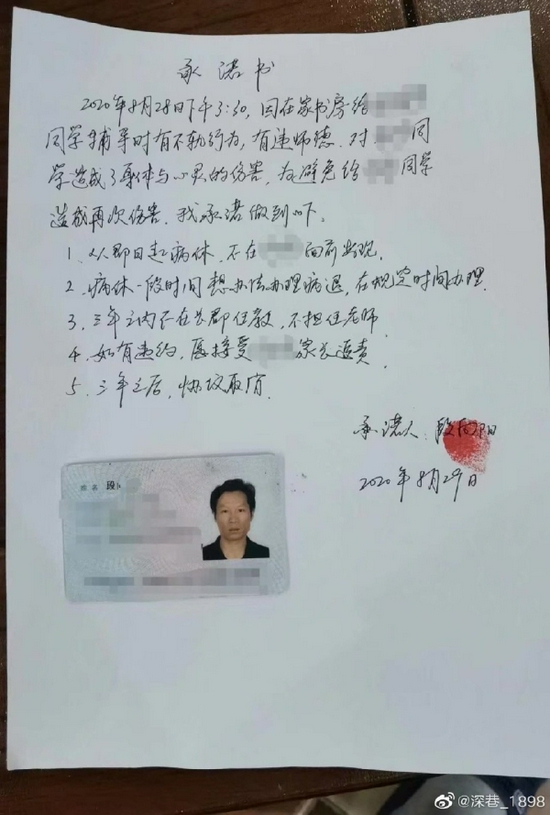 承诺书
2020年8月28日下午3:30,因在家书房给
同学辅导时有不轨行为,有违师德.对 同
学造成了身体与心灵的伤害,为避免给 同学
造成再次伤害.我承诺做到以下.
1、从即日起病休,不在 面前出现.
2、病休一段时间想办法办理病退,在规定时间办理.
3、三年之内不在长郡任教,不担任老师
4、如有违约,愿接受 家长追责
5、三年之后,协议取消.
承诺人:段向阳
2020年8月29日
姓名 段
@深巷_1898